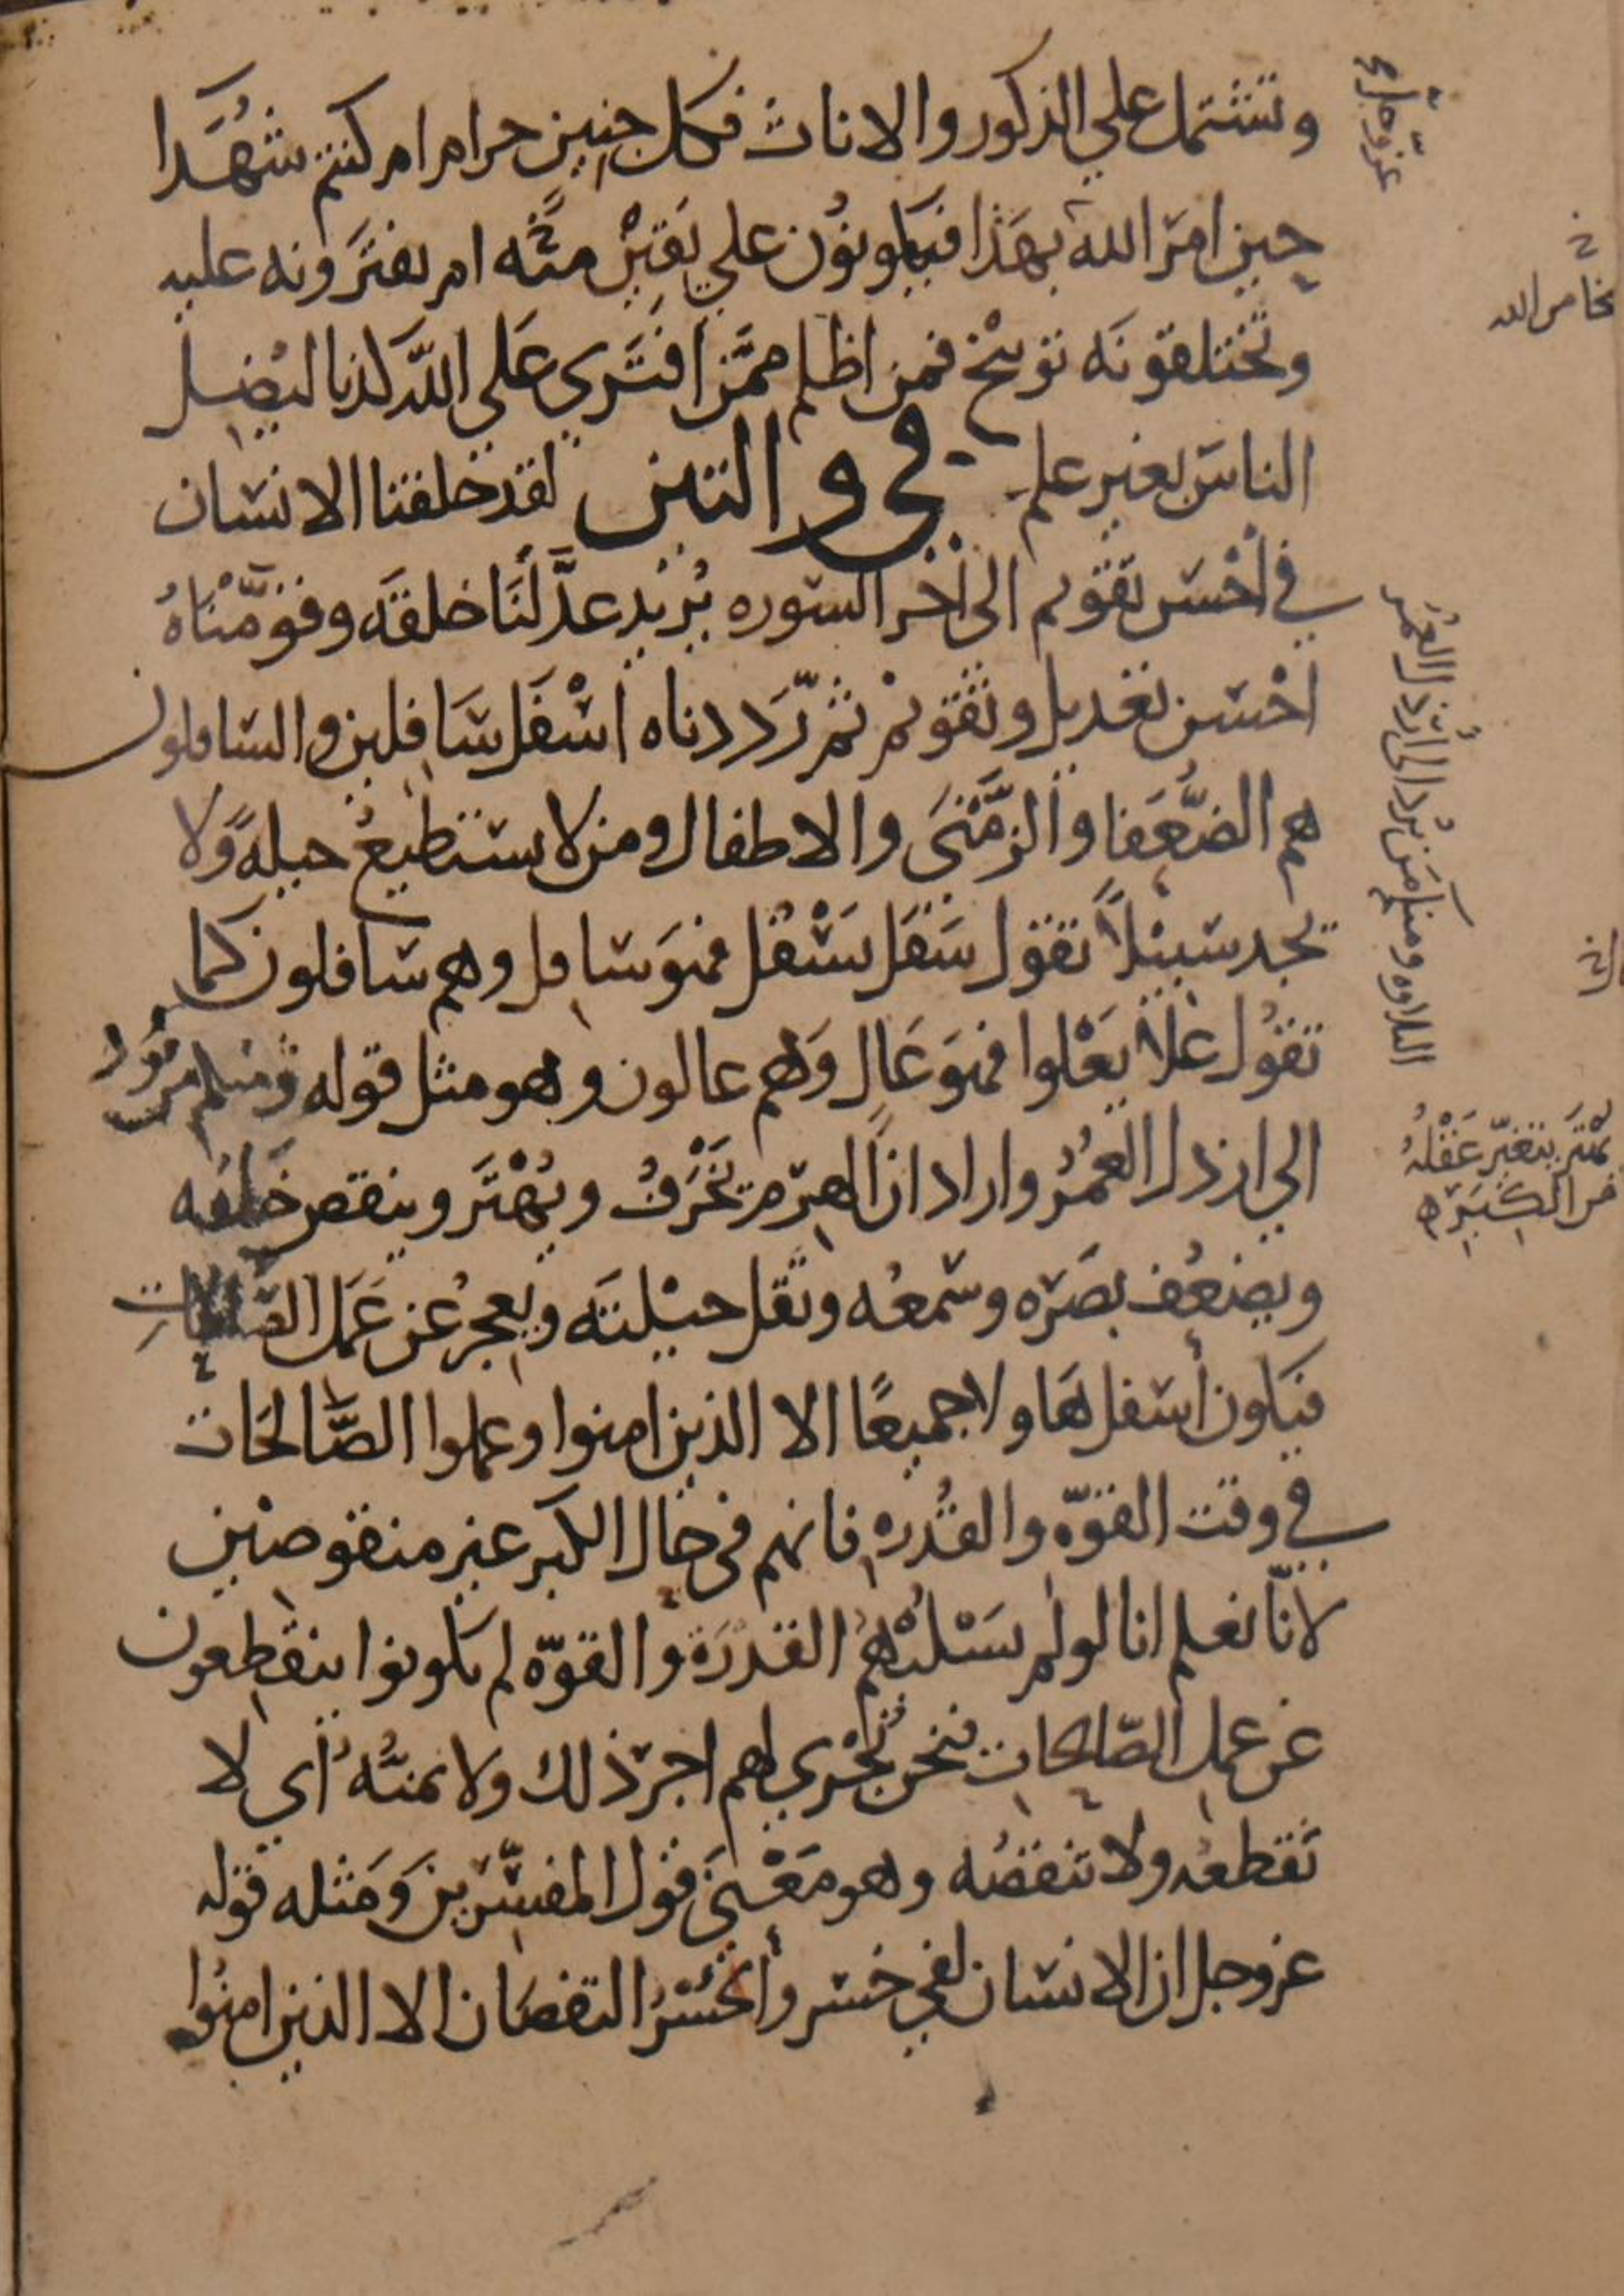 وتشتمل علي الذكور والاناث فكل جنين حرام ام كنتم شهدا
حين امر الله بهذا فتكونون علي يقين منه ام تفترونه عليه
وتختلقونه توبيخ فمن اظلم ممن افتري علي الله كذبا ليضل
الناس بغير علم في والتين لقد خلقنا الانسان
في احسن تقويم الى اخر السوره يريد عدلنا خلقه وقومناه
احسن تعديل وتقويم ثم رددناه اسفل سافلين والسافلون
هم الضعفا والزمني والاطفال ومن لا يستطيع حيلة ولا
يجد سبيلا تقول سفل يسفل فهو سافل وهم سافلون كما
تقول علا يعلوا فهو عال وهم عالون وهو مثل قوله ومنكم من يرد
الي ارذل العمر واراد ان الهرم يخرف ويهتر وينقص خلقه
ويضعف بصره وسمعه وتقل حيلته ويعجز عن عمل الصالحات
فيكون اسفل هاولا جميعا الا الذين امنوا وعملوا الصالحات
في وقت القوه والقدره فانهم في حال الكبر غير منقوصين
لانا نعلم انا لو لم نسلبهم القدرة والقوه لم يكونوا ينقطعون
عن عمل الصالحات فنحن نجري لهم اجر ذلك ولا نمنه اي لا
نقطعه ولا ننقصه وهو معني قول المفسرين ومثله قوله
عز وجل ان الانسان لفي خسر والخسر النقصان الا الذين امنوا
من الله
التلاوه ومنكم من يرد الى ارذل العمر
يهتر يتغير عقله
من الكبره